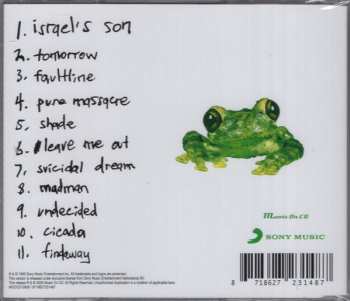 1. israel's son
2. tomorrow
3. faultline
4. pure massacre
5. shade
6. leave me out
7. suicidal dream
8. madman
9. undecided
10. cicada
11. findaway
Music On CD
SONY MUSIC
8 718627 231487